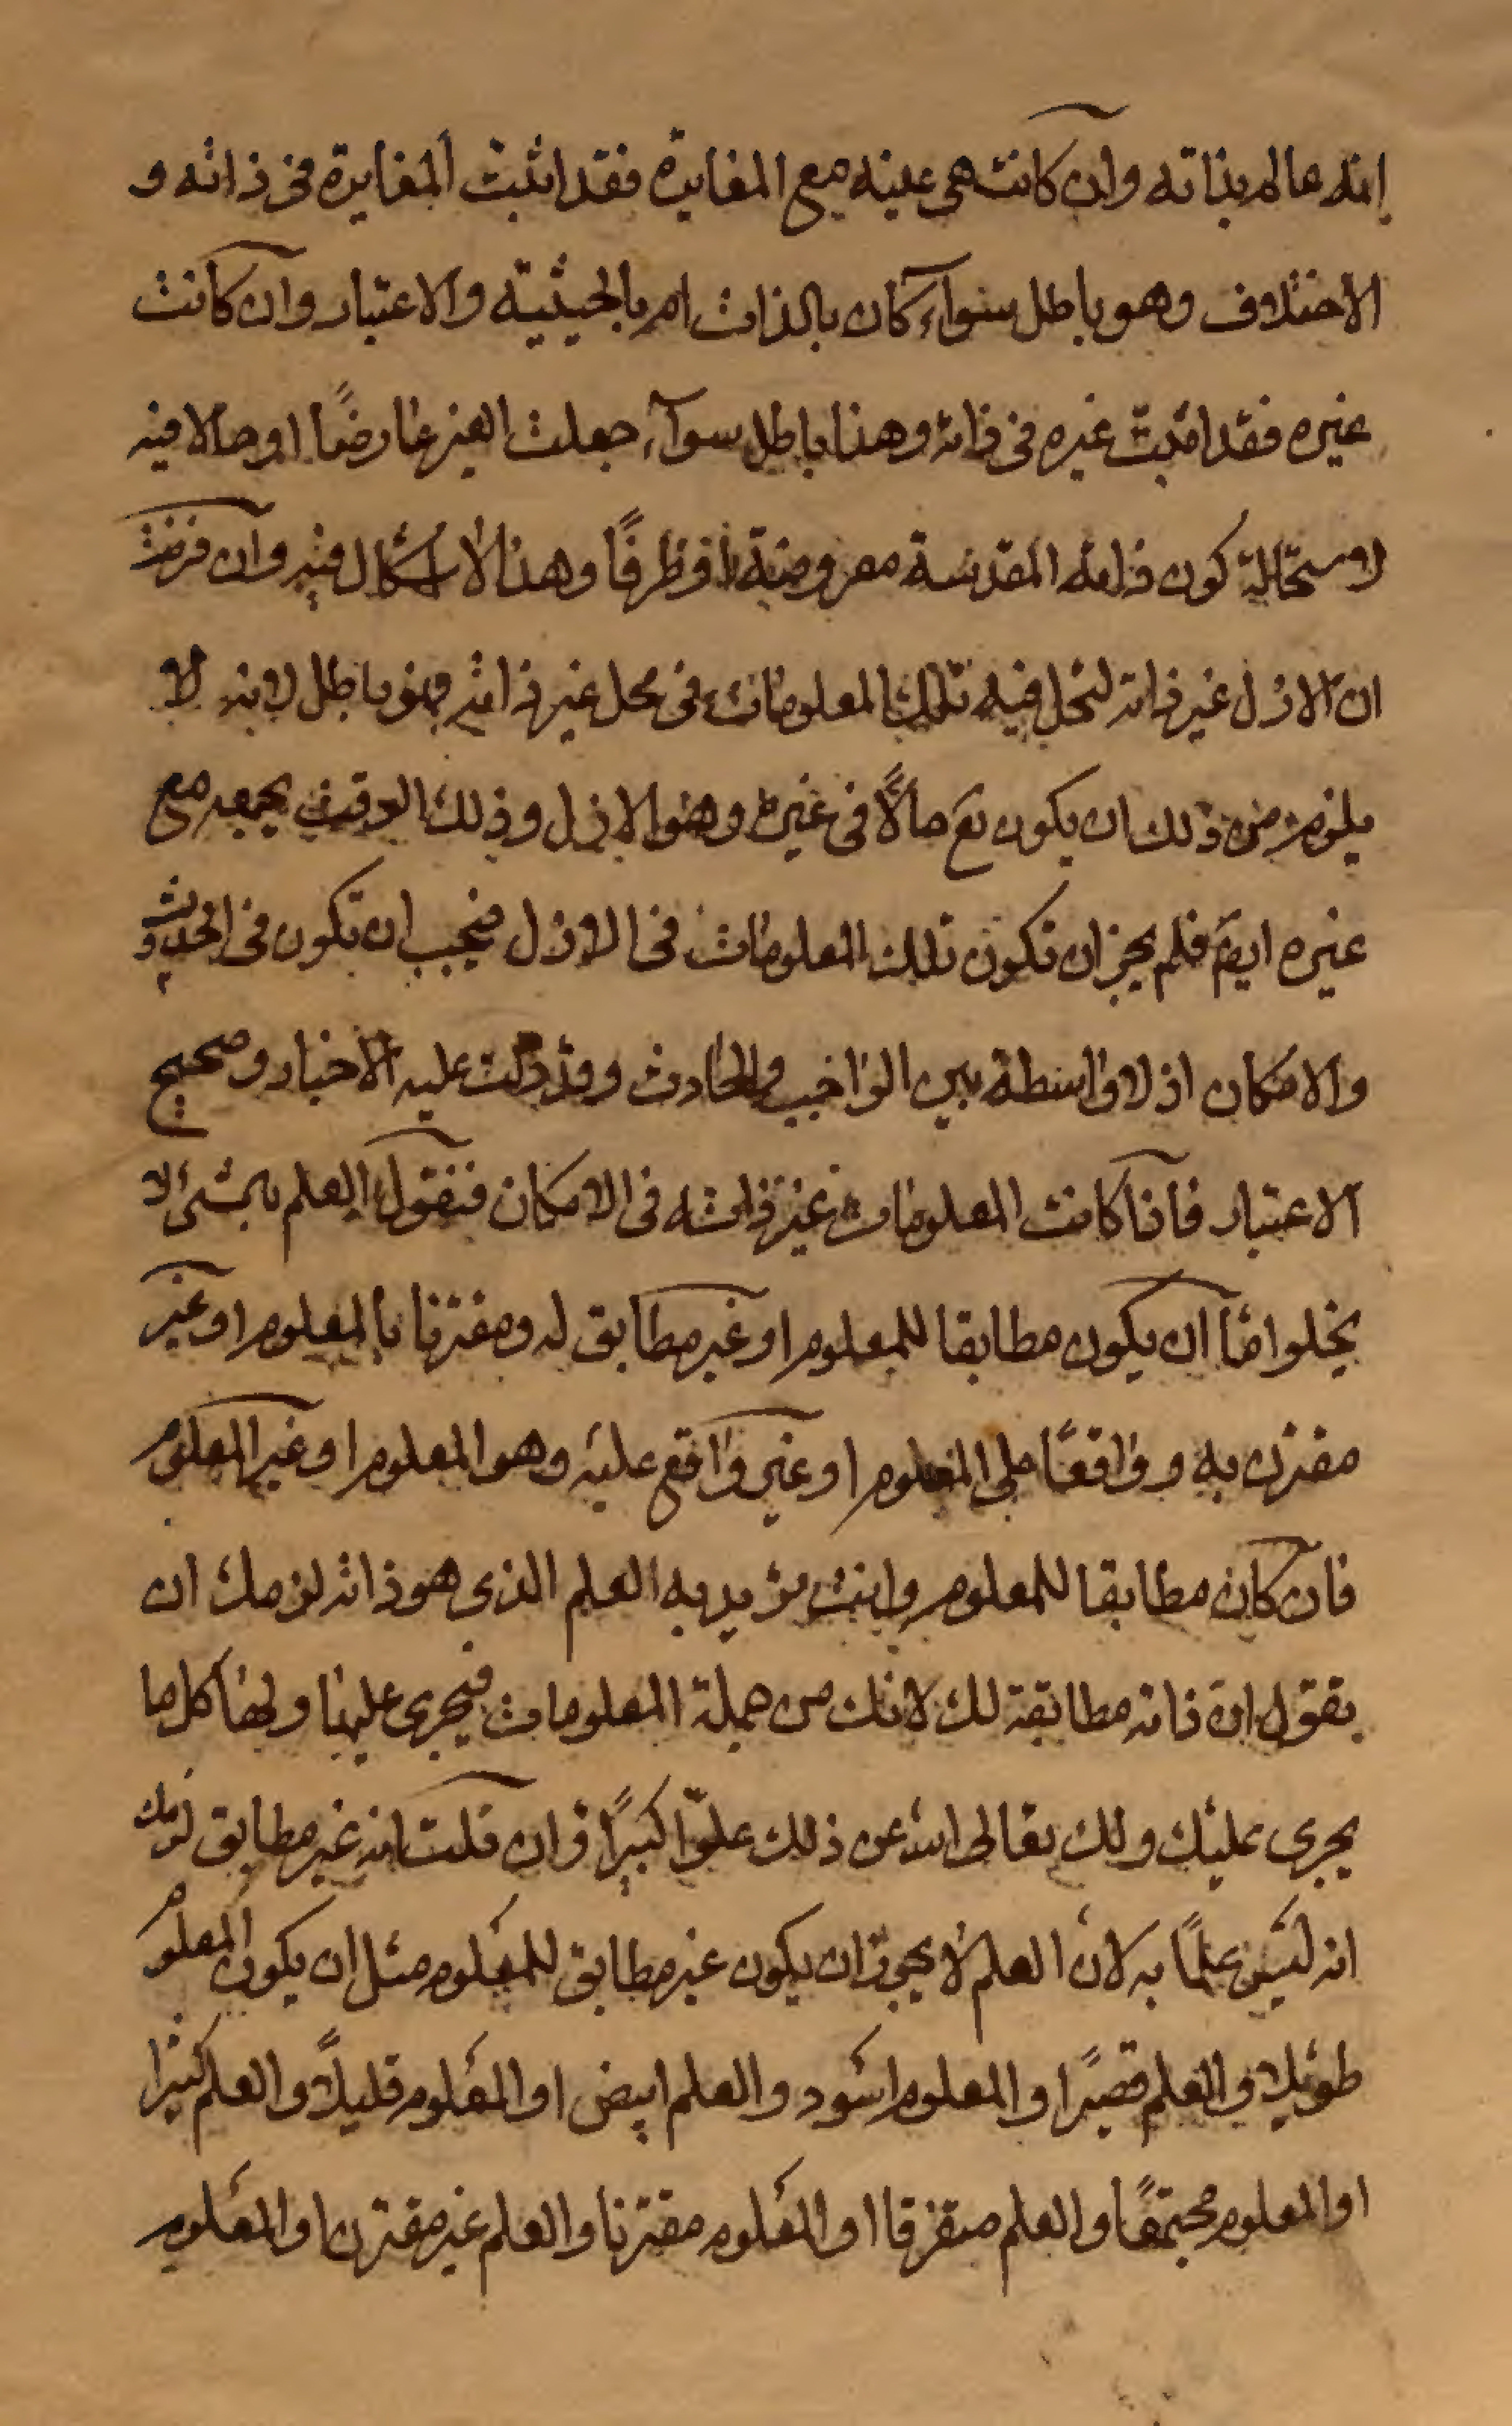 انه عالم بذاته وان كانت هى عينه مع المغايرة فقد اثبت المغايرة فى ذاته و
الاختلاف وهو باطل سواء كان بالذات ام بالحيثية والاعتبار وان كانت
غيره فقد اثبت غيره فى ذاته وهذا باطل سوآء جعلت الغير عارضًا او حالا فيه
لاستحالة كون ذاته المقدسة معروضة او ظرفًا وهذا لا اشكال فيه وان فرضت
ان الازل غير ذاته لتحل فيه تلك المعلومات فى محل غير ذاته فهو باطل لانه لا
يلزم من ذلك ان يكون تع حالًّا فى غيره وهو الازل وذلك الوقت يجمعه مع
غيره ايضً فلم يجز ان تكون تلك المعلومات فى الازل فيجب ان تكون فى الحدوث
والامكان اذ لا واسطة بين الواجب والحادث وقد دلت عليه الاخبار وصحيح
الاعتبار فاذا كانت المعلومات غير ذاته فى الامكان فنقول العلم بشئ لا
يخلوا امّا ان يكون مطابقا للمعلوم او غير مطابق له ومقترنا بالمعلوم او غير
مقترن به وواقعًا على المعلوم او غير واقع عليه وهو المعلوم او غير المعلوم
فان كان مطابقا للمعلوم وانت تريد به العلم الذى هو ذاته لزمك ان
تقول ان ذاته مطابقة لك لانك من جملة المعلومات فيجرى عليها ولها كل ما
يجرى عليك ولك تعالى الله عن ذلك علوّا كبيرًا وان قلت انه غير مطابق لزمك
انه ليس علمًا به لان العلم لا يجوز ان يكون غير مطابق للمعلوم مثل ان يكون المعلوم
طويلا والعلم قصيرًا والمعلوم اسود والعلم ابيض او المعلوم قليلاً والعلم كثيرا
او المعلوم مجتمعًا والعلم متفرقا او المعلوم مقترنا والعلم غير مقترن او المعلوم